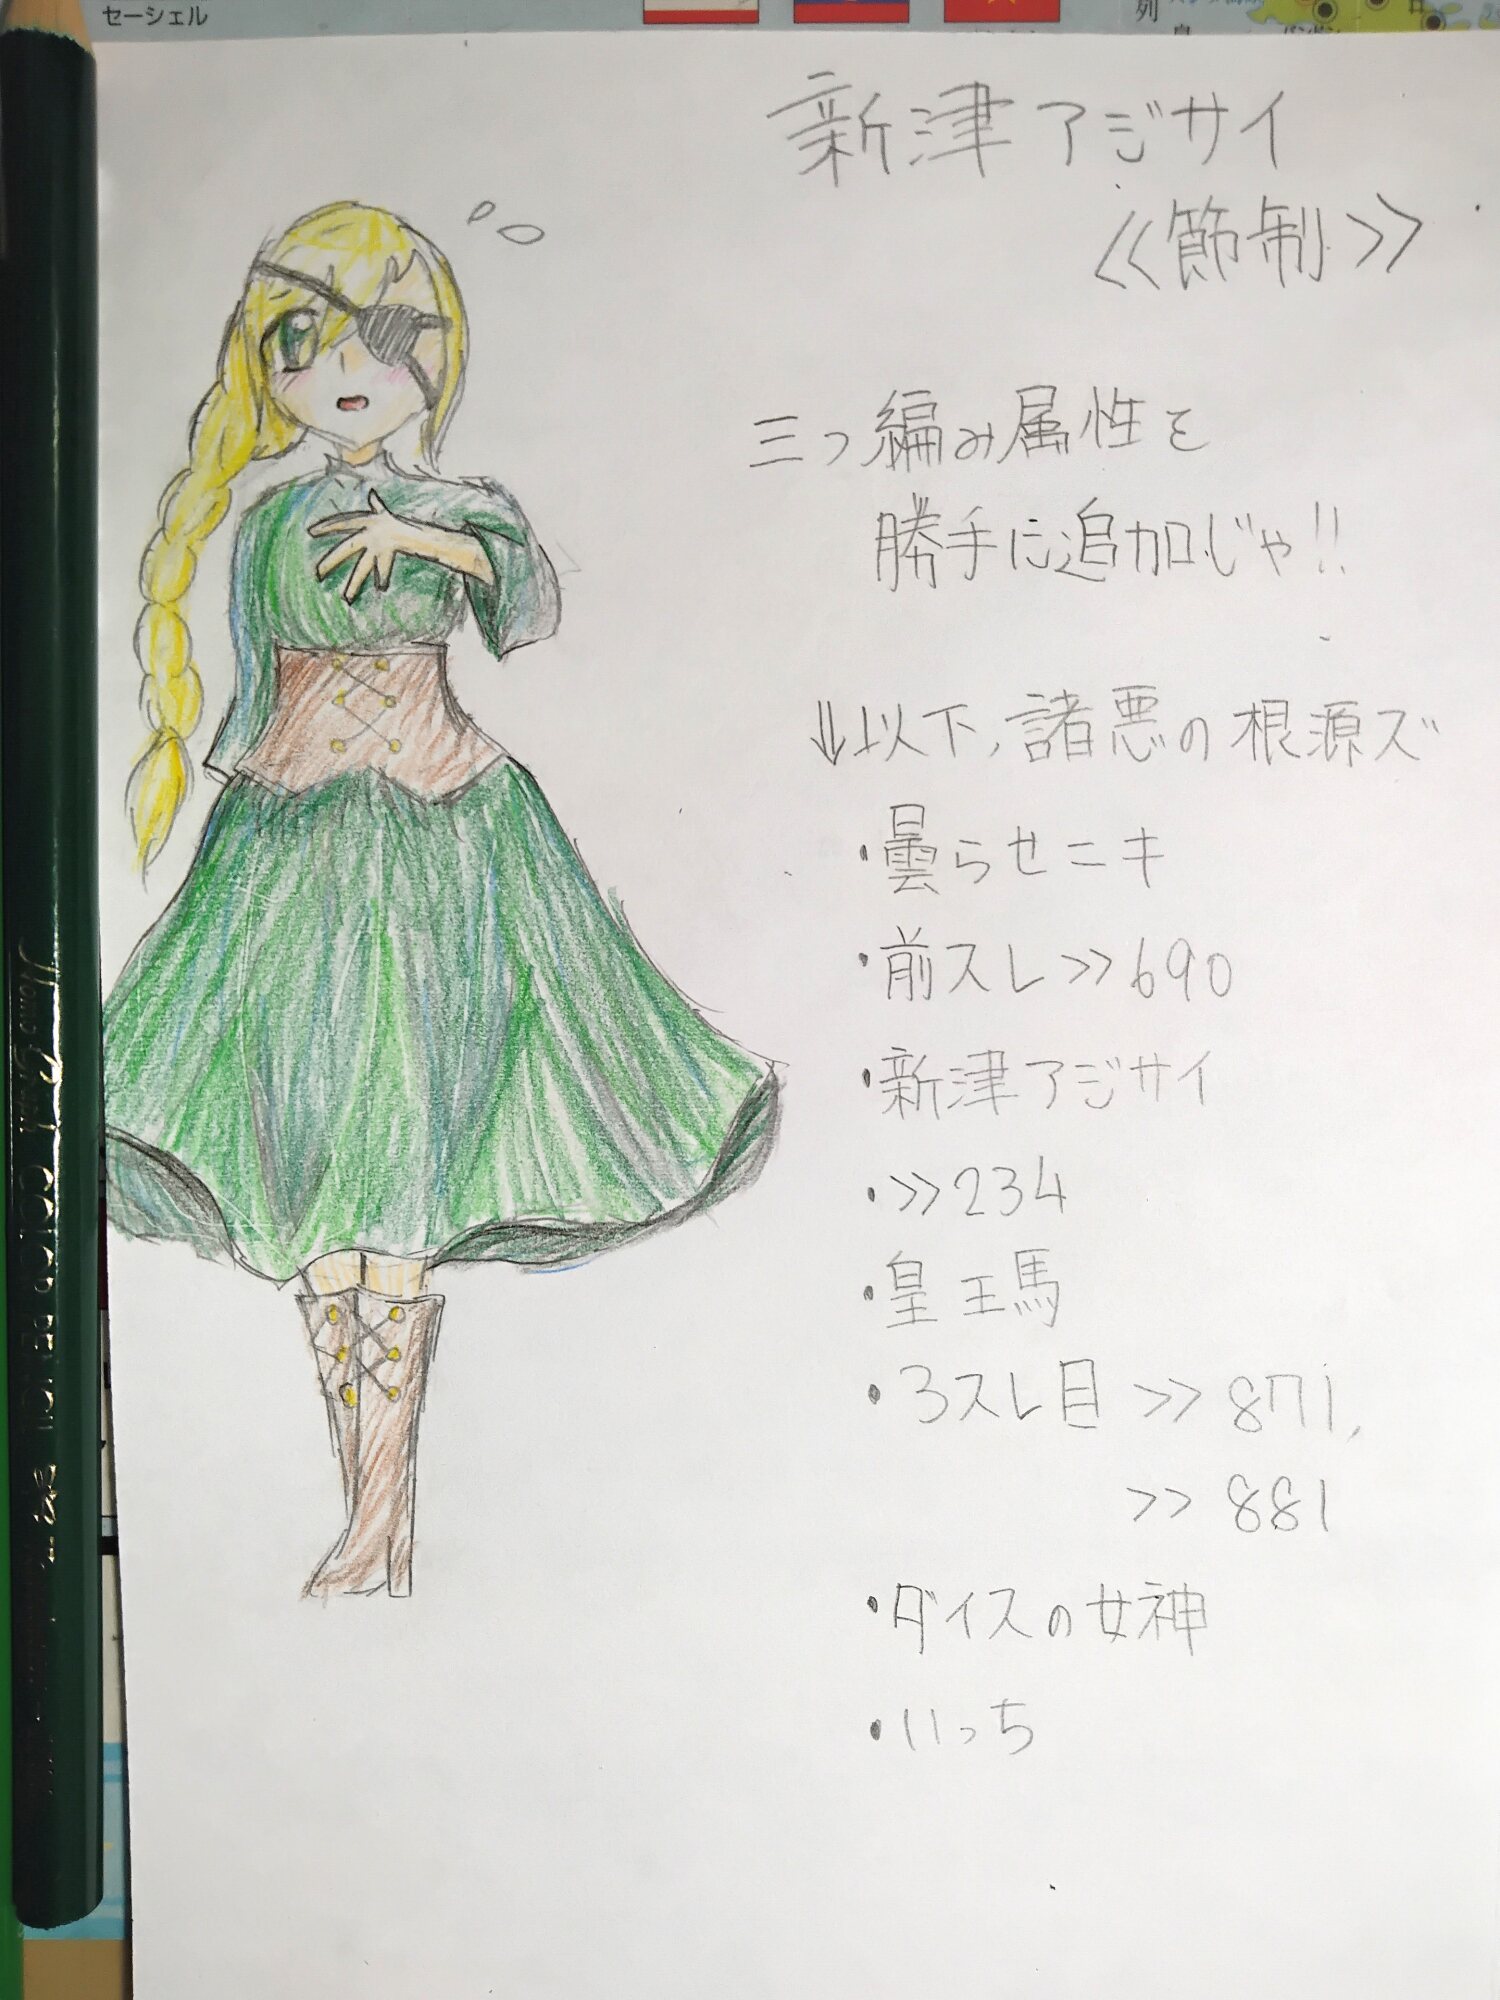 セーシェル
新津アジサイ
≪節制≫
三つ編み属性を
勝手に追加じゃ!!
⇓以下、諸悪の根源ズ
・曇らせニキ
・前スレ>>690
・新津アジサイ
・>>234
・皇王馬
・3スレ目>>871,
>>881
・ダイスの女神
・いっち